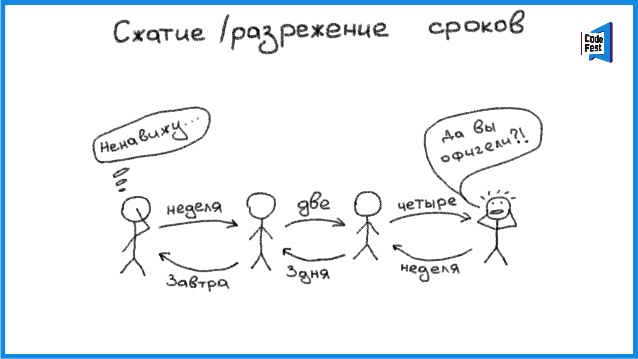 Сжатие /разрежение сроков
Code
Fest
Ненавижу...
Да вы
офигели?!
неделя
две
четыре
Завтра
3 дня
неделя